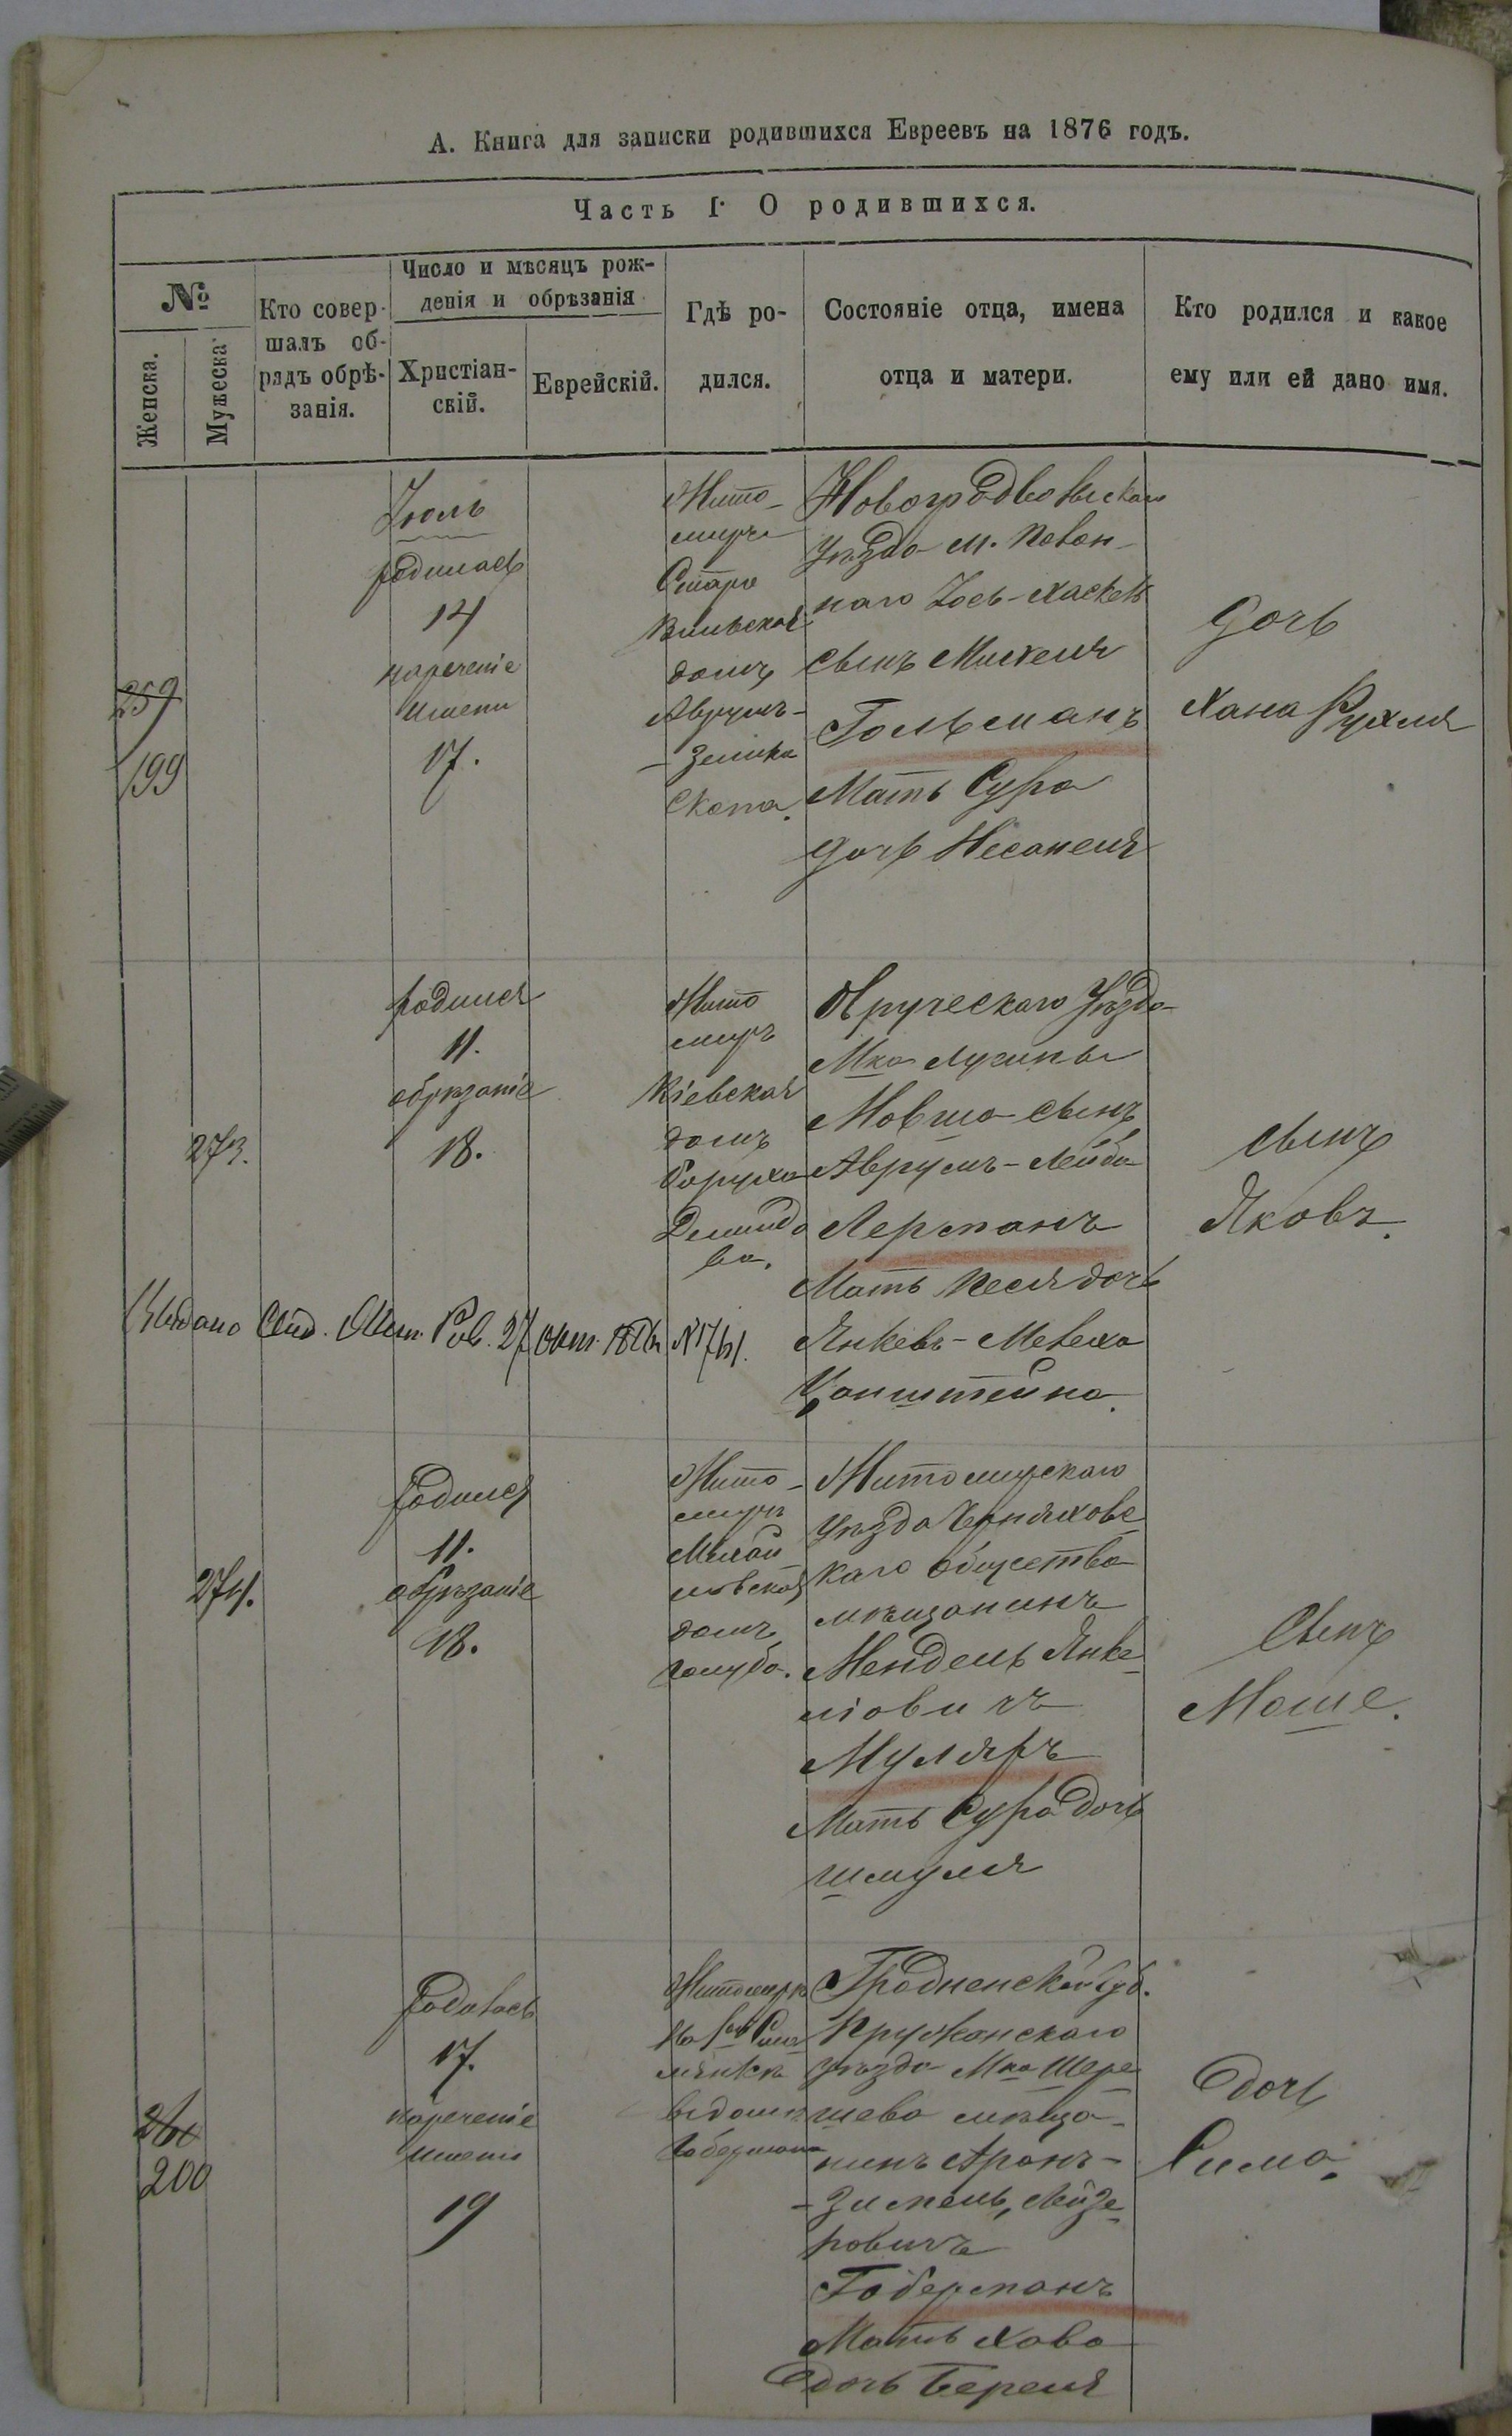 А. Книга для записки родившихся Евреевъ на 1876 годъ.
Часть I. О родившихся.
№
Женска.
Мужеска
Кто совер-
шалъ об-
рядъ обрѣ-
занія.
Число и мѣсяцъ рож-
денія и обрѣзанія
Христіан-
скій.
Еврейскій.
Гдѣ ро-
дился.
Состояніе отца, имена
отца и матери.
Кто родился и какое
ему или ей дано имя.
259
199
Іюль
родилась
14
нареченіе
имени
17.
Жито-
миръ
Старо
Вильская
домъ
Аврумъ-
- Зелика
Скота.
Новоградволынскаго
уѣзда м.
наго Іось-Хаскель
сынъ Михеля
Гольсманъ
Мать Сура
дочь
дочь
Хана Рухля
273.
родился
11.
обрѣзаніе
18.
Жито
миръ
Кіевская
домъ
Боруха
Демидо
ва.
Овручскаго уѣзда
Мка Лугины
Мовша сынъ
Аврумъ-Лейба
Лерманъ
Мать Песя дочь
Янкевъ-Мевеха
Цонштейна.
сынъ
Яковъ.
Выдано Свид. 27 окт. 1876 №1741.
274.
родился
11.
обрѣзаніе
18.
Жито-
миръ
Михай
ловская
домъ
Голуба.
Житомирскаго
уѣзда Черняховс
каго общества
мѣщанинъ
Мендель Янке
ліовичъ
Муляръ
Мать Сура дочь
Шмуля
Сынъ
Моше.
260
200
родилась
17.
нареченіе
имени
19
Житомирѣ
въ домѣ
Гобермана
Гродненской губ.
Пружанскаго
уѣзда Мка Шере
шева мѣща-
нинъ Аронъ-
- Зимель, Лейзе
ровичъ
Гоберманъ
Мать Хава
дочь Береля
дочь
Сима.